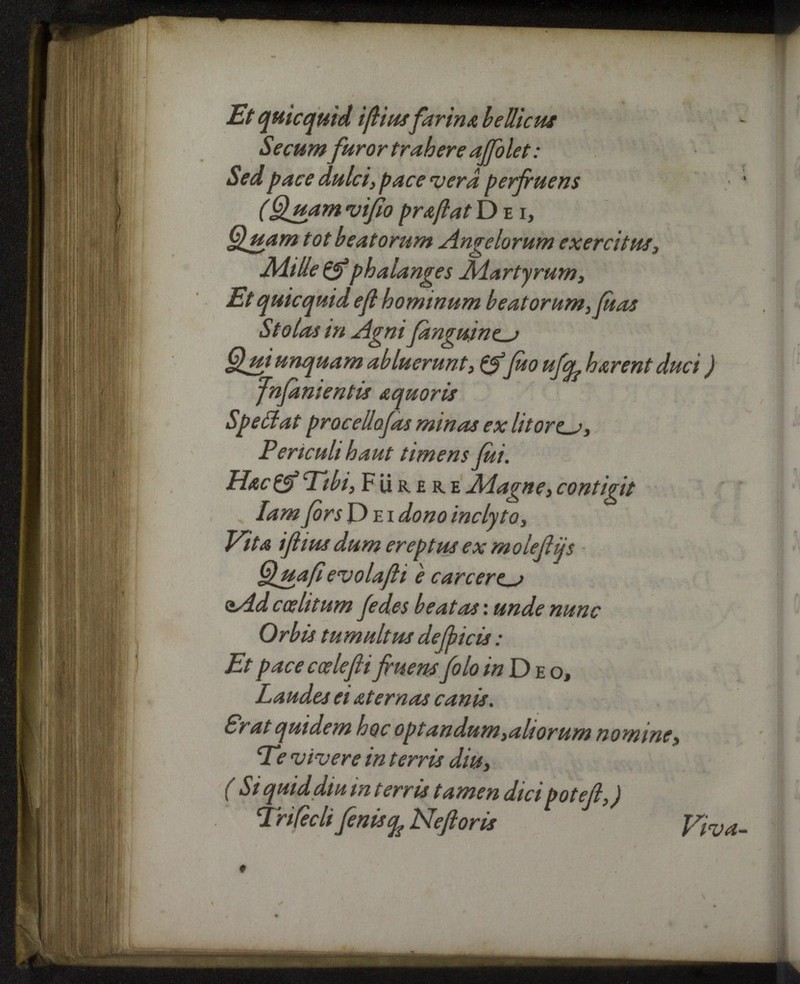 Et quicquid istius farinæ bellicus
Secum furor trahere assolet:
Sed pace dulci, pace verâ perfruens
(Quam visio præstat DEI,
Quam tot beatorum Angelorum exercitus,
Mille & phalanges Martyrum,
Et quicquid est hominum beatorum, suas
Stolas in Agni sanguine
Qui unquam abluerunt, & suo usq; hærent duci)
Insanientis æquoris
Spectat procellosas minas ex litore,
Periculi haut timens sui.
Hæc & Tibi, FüRERE Magne, contigit
Iam sors DEI dono inclyto,
Vitæ istius dum ereptus ex molestijs
Quasi evolasti è carcere
Ad cœlitum sedes beatas: unde nunc
Orbis tumultus despicis:
Et pace cœlesti fruens solo in DEO,
Laudes ei æternas canis.
Erat quidem hoc optandum, aliorum nomine,
Te vivere in terris diu,
(Si quid diu in terris tamen dici potest,)
Trisecli senisq; Nestoris
Viva-